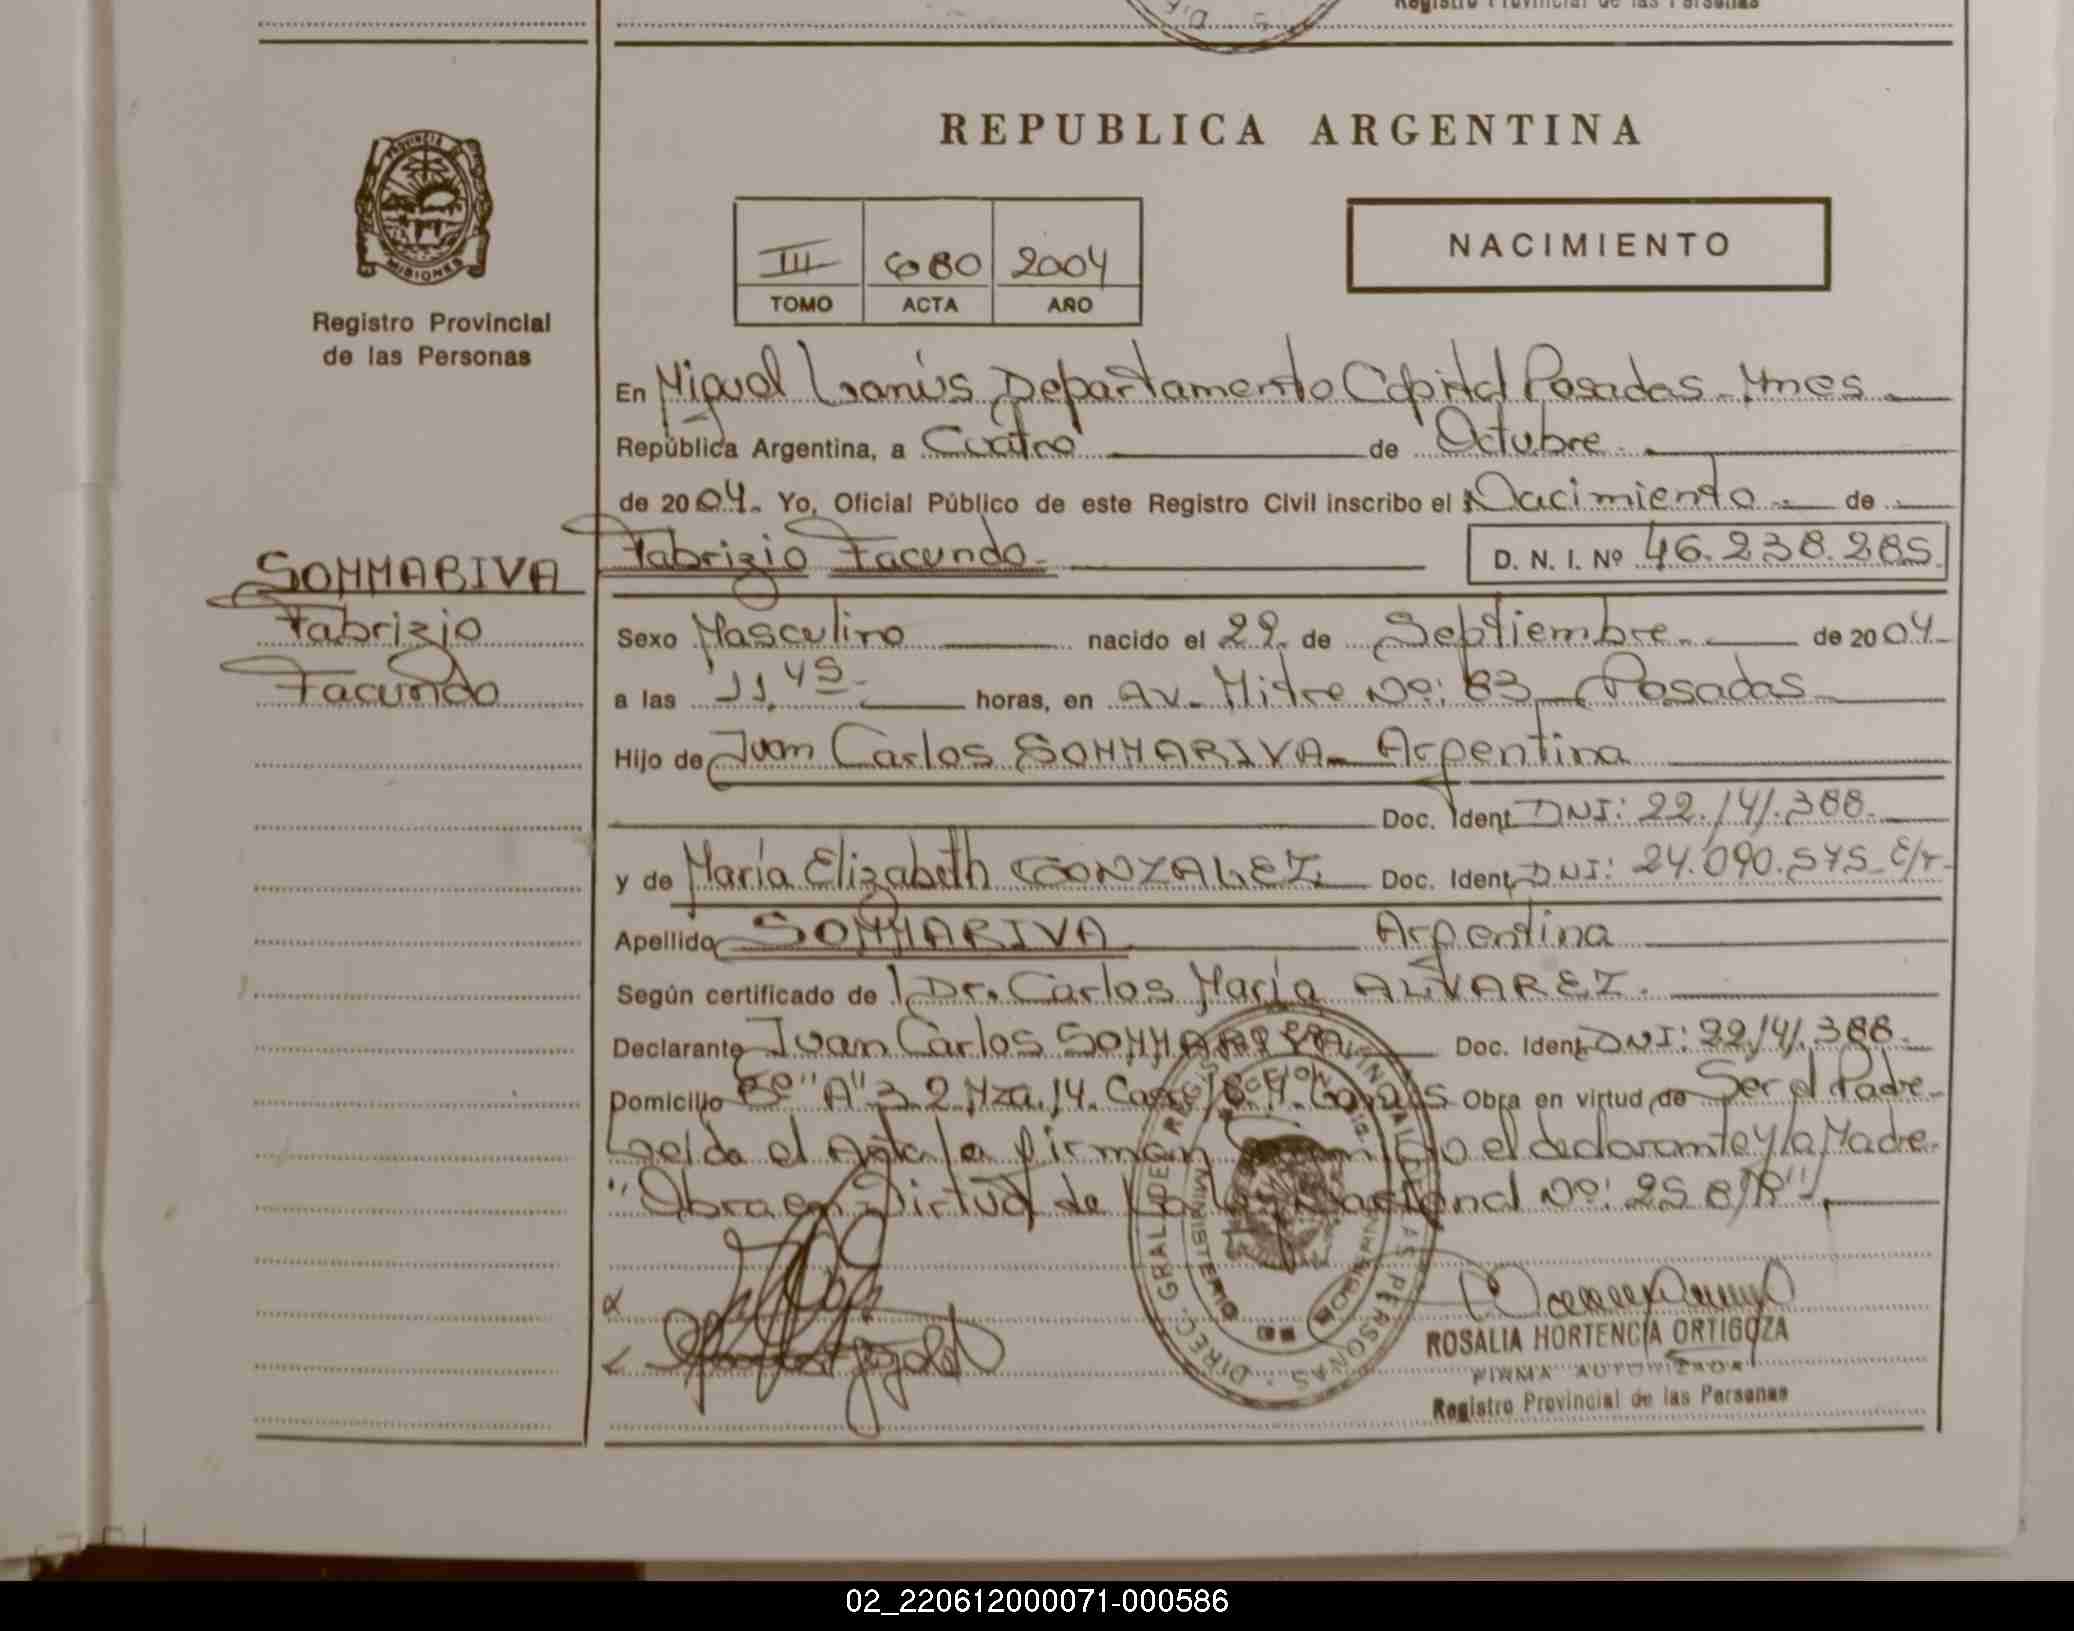 Registro Provincial de las Personas
REPUBLICA ARGENTINA
PROVINCIA
MISIONES
Registro Provincial
de las Personas
III 2004
TOMO ACTA AÑO
NACIMIENTO
En Miguel Lanús Departamento Capital Posadas - Mnes
República Argentina, a Cuatro de Octubre
de 2004. Yo, Oficial Público de este Registro Civil inscribo el Nacimiento de
Fabrizio Facundo D. N. I. Nº 46.238.285
SOMMARIVA
Fabrizio
Facundo
Sexo Masculino nacido el de Septiembre de 2004
a las 11,45 horas, en Av. Mitre Nº: 83 Posadas
Hijo de Juan Carlos SOMMARIVA - Argentina
Doc. Ident. DNI: 22.141.388
y de María Elizabeth GONZALEZ Doc. Ident. DNI: 24.090.575
Apellido SOMMARIVA Argentina
Según certificado de Dr. Carlos María ALVAREZ.
Declarante Juan Carlos SOMMARIVA Doc. Ident. DNI: 22.141.388
Domicilio Bº "A" 3 2 Mza. 14. Casa Obra en virtud de Ser el Padre
Leída el Acta la firman el declarante y la Madre.
"Obra en Virtud de la Ley Nacional Nº:
DIREC. GRAL. DE REGISTRO PROVINCIAL DE LAS PERSONAS
MINISTERIO
MISIONES
ROSALIA HORTENCIA ORTIGOZA
FIRMA AUTORIZADA
Registro Provincial de las Personas
02_220612000071-000586